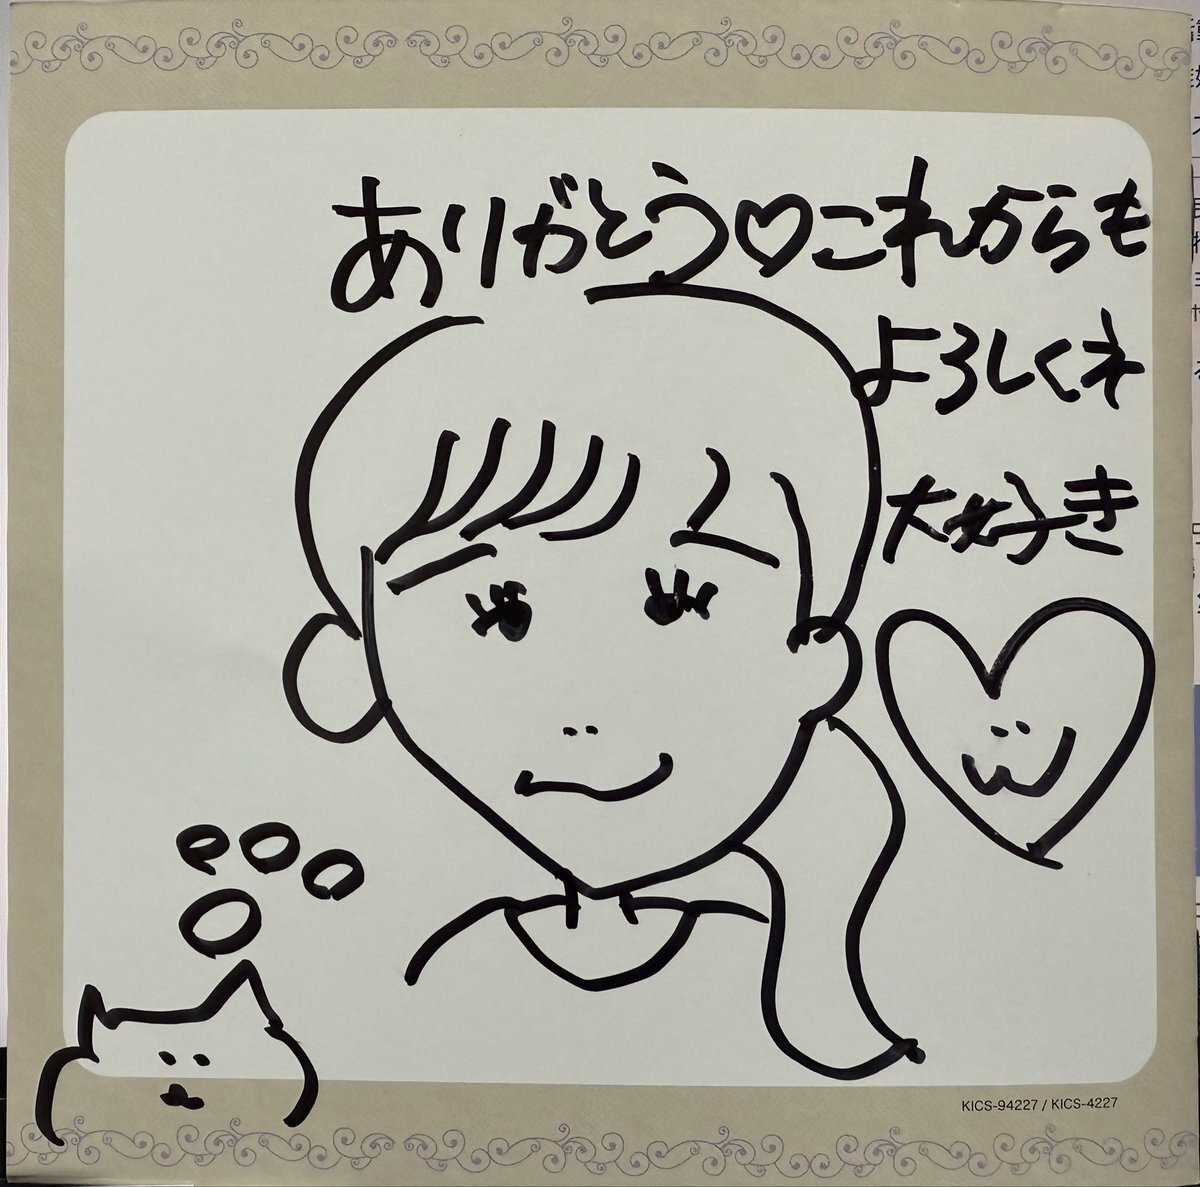 ありがとう♡これからも
よろしくネ
大好き
KICS-94227 / KICS-4227